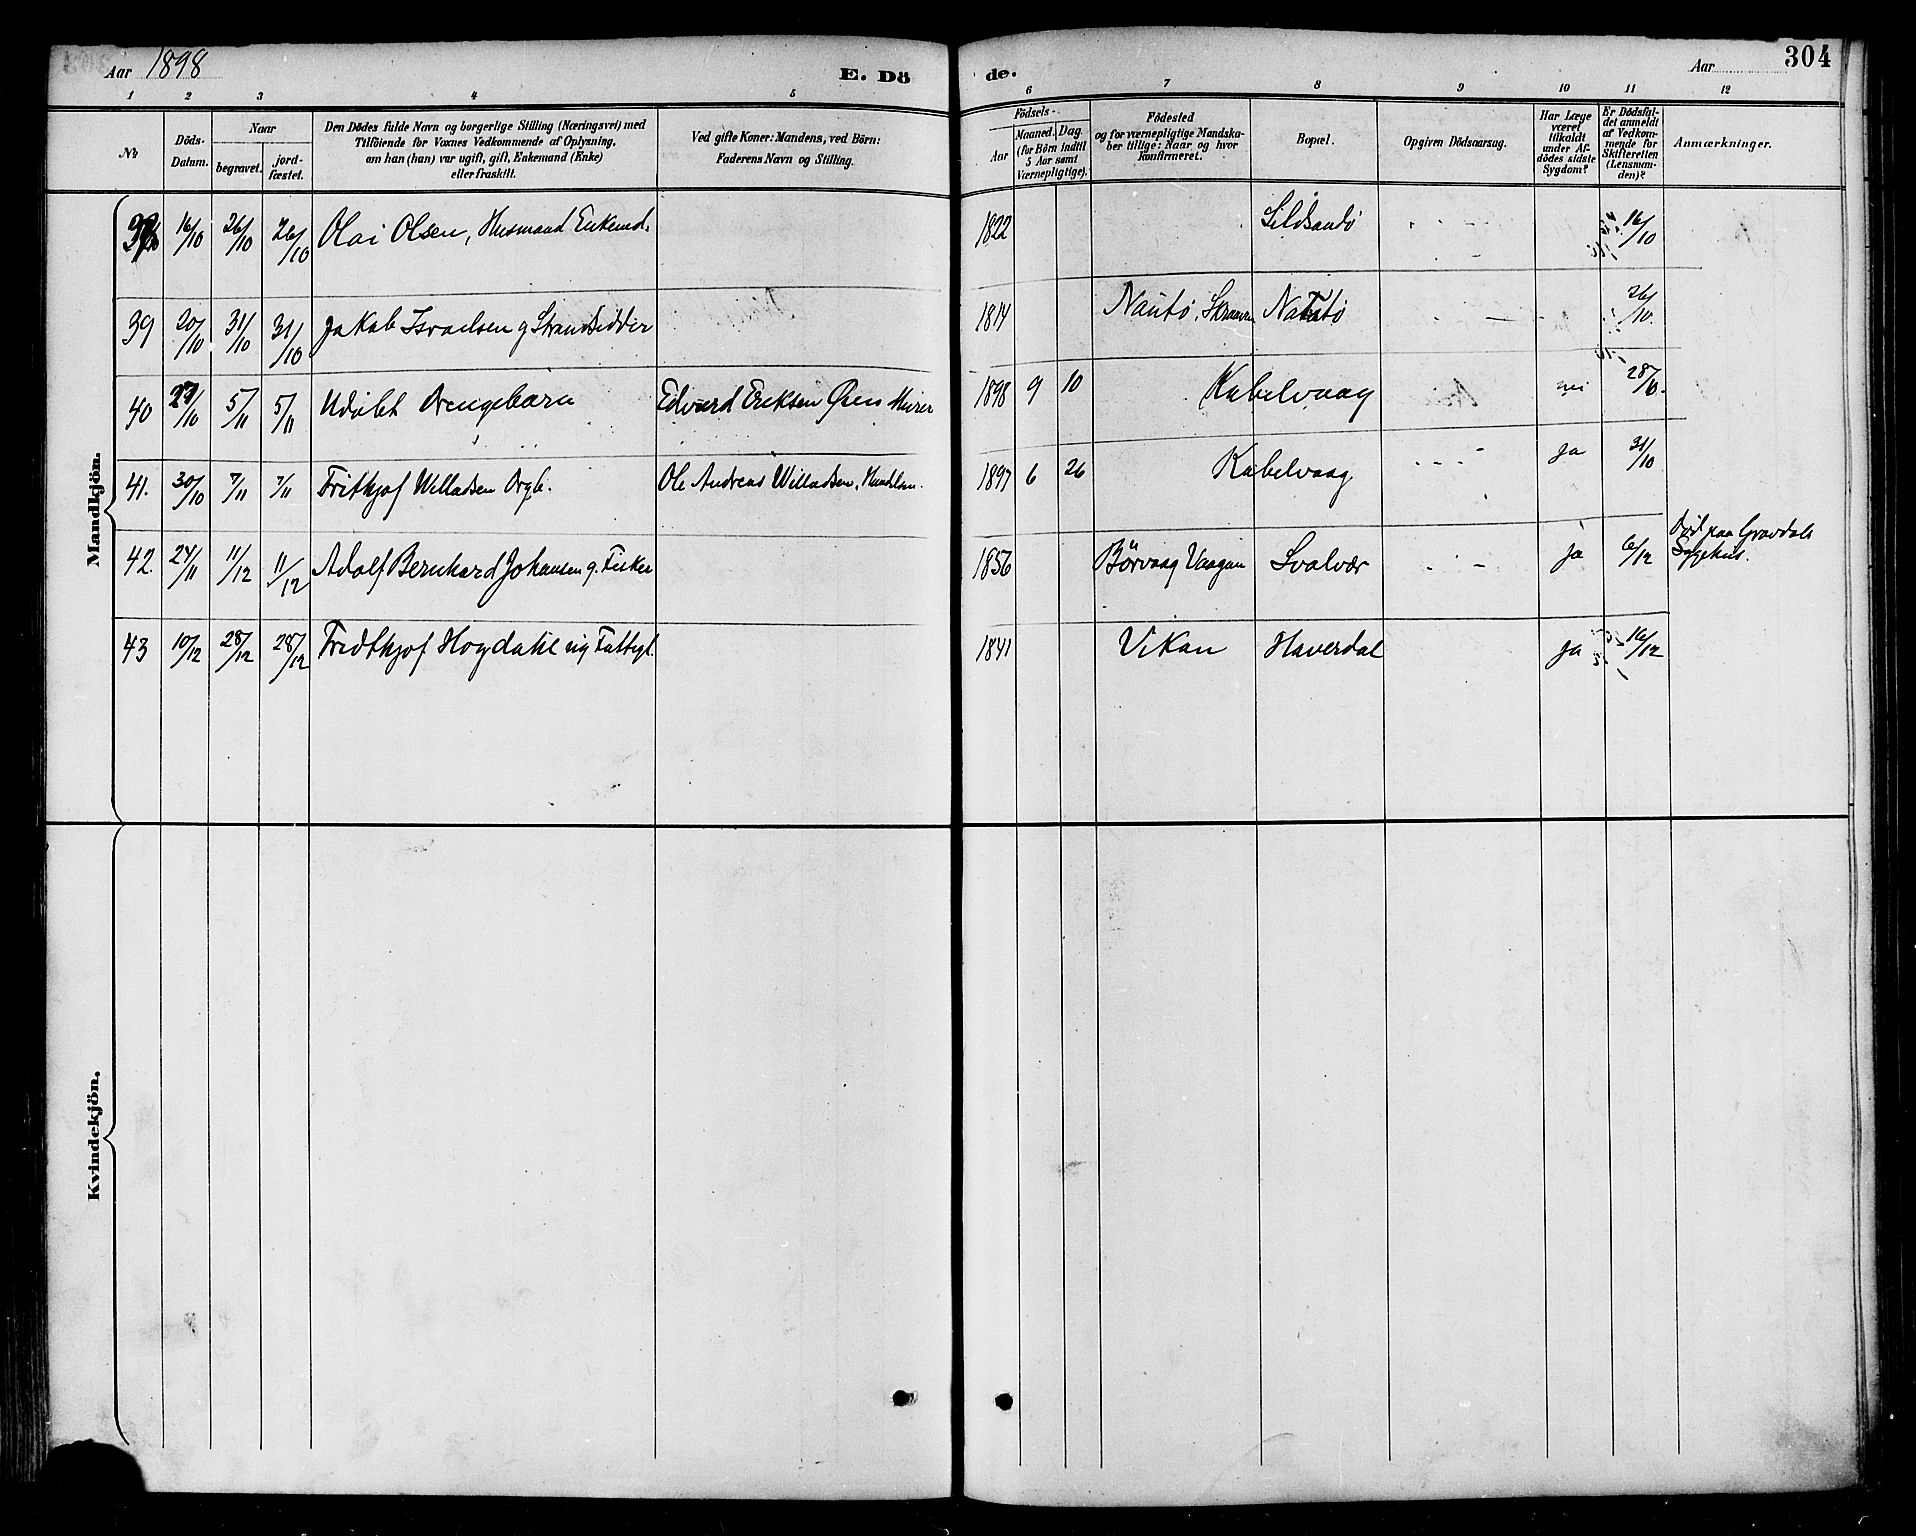 Aar 1898
E. Dö
de.
Aar
304
1 2 3 4 5 6 7 8 9 10 11 12
No
Döds-Datum.
Naar
begravet.
jord-fæstet.
Den Dödes fulde Navn og borgerlige Stilling (Næringsvei) med
Tilföiende for Voxnes Vedkommende af Oplysning,
om han (han) var ugift, gift, Enkemand (Enke)
eller fraskilt.
Ved gifte Koner: Mandens, ved Börn:
Faderens Navn og Stilling.
Födsels-
Aar
Maaned. Dag.
(for Börn indtil
5 Aar samt
Værnepligtige).
Födested
og for værnepligtige Mandska-
ber tillige: Naar og hvor
konfirmeret.
Bopæl.
Opgiven Dödsaarsag.
Har Læge
været
tilkaldt
under Af-
dödes sidste
Sygdom?
Er Dödsfal-
det anmeldt
af Vedkom-
mende for
Skifteretten
(Lensman-
den)?
Anmærkninger.
Mandkjön.
16/10 26/10 26/10 Olai Olsen, Husmand Enkemd. 1822 Sildsandø 16/10
39 20/10 31/10 31/10 Jakob Israelsen g Strandsidder 1814 Nautø, Skraaven Nautø 26/10.
40 27/10 5/11 5/11 Udøbt Drengebarn Edvard Eriksen Øien Murer 1898 9 10 Kabelvaag nei 28/10.
41. 30/10 7/11 7/11 Frithjof Willadsen Drgb. Ole Andreas Willadsen, Handelsm. 1897 6 26 Kabelvaag Ja 31/10
42. 24/11 11/12 11/12 Adolf Bernhard Johansen g. Fisker 1856 Børvaag Vaagan Svolvær Ja 6/12 Død paa Gravdals
Sygehus.
43 10/12 28/12 28/12 Fridtkjof Hogdahl ug Fattigl. 1841 Vikan Haverdal Ja 16/12
Kvindekjön.